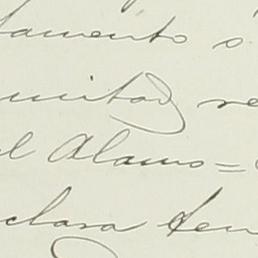 amento o
mitad re
el Alamo=
clara ten